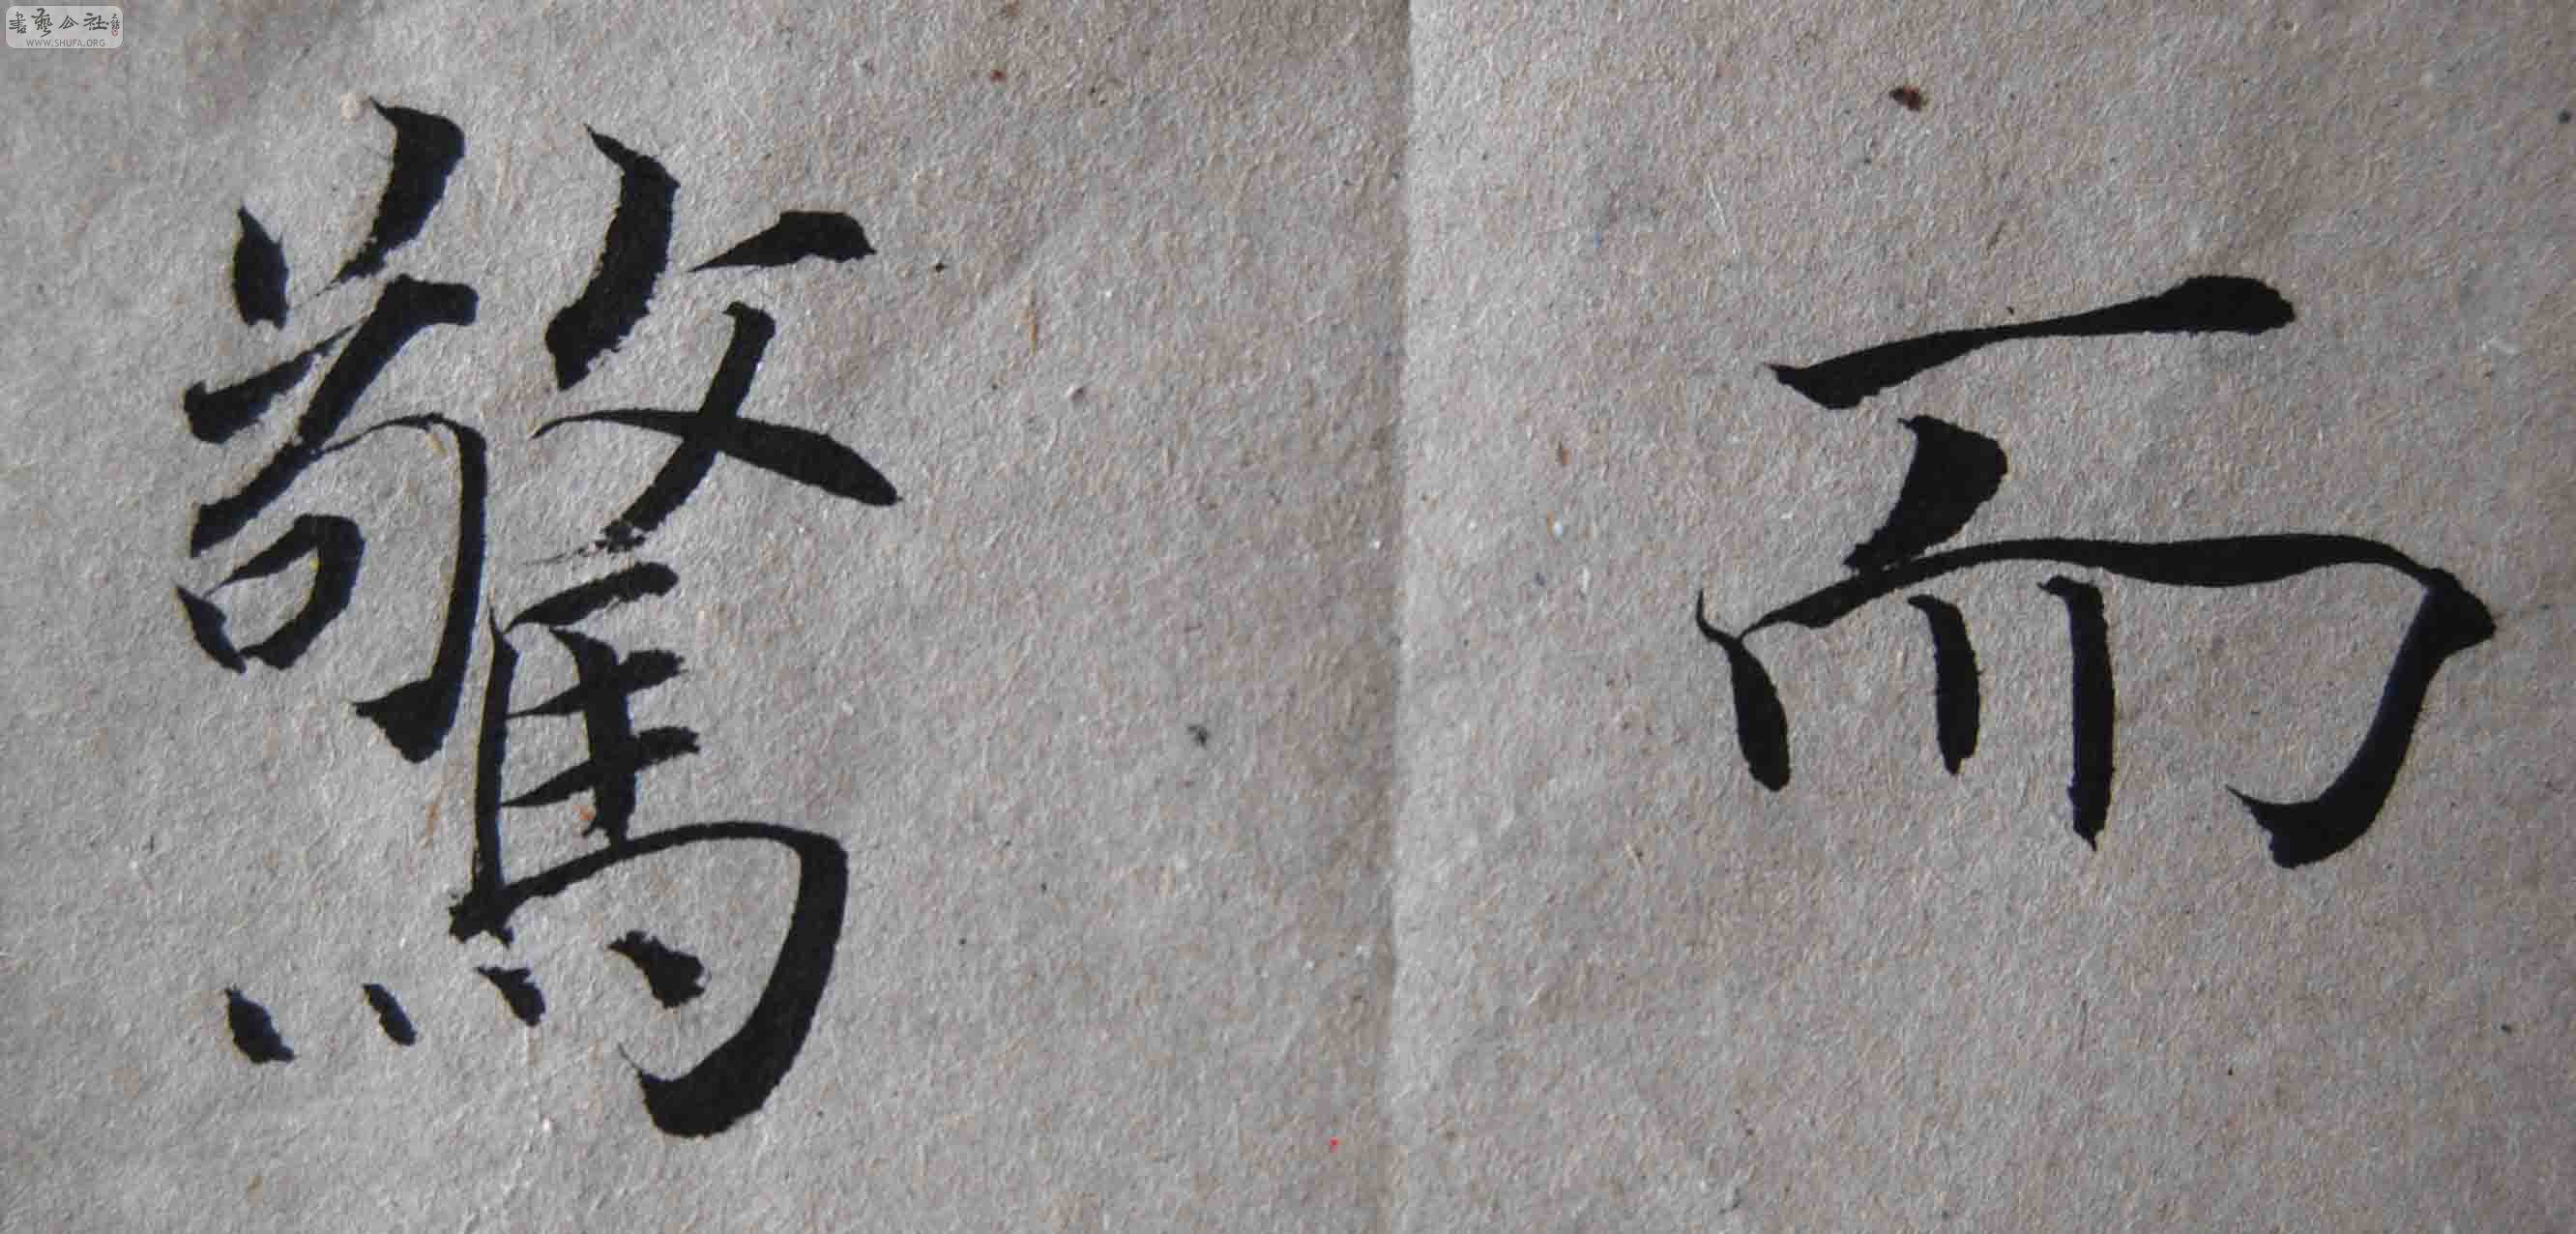 書藝公社
WWW.SHUFA.ORG
而
驚